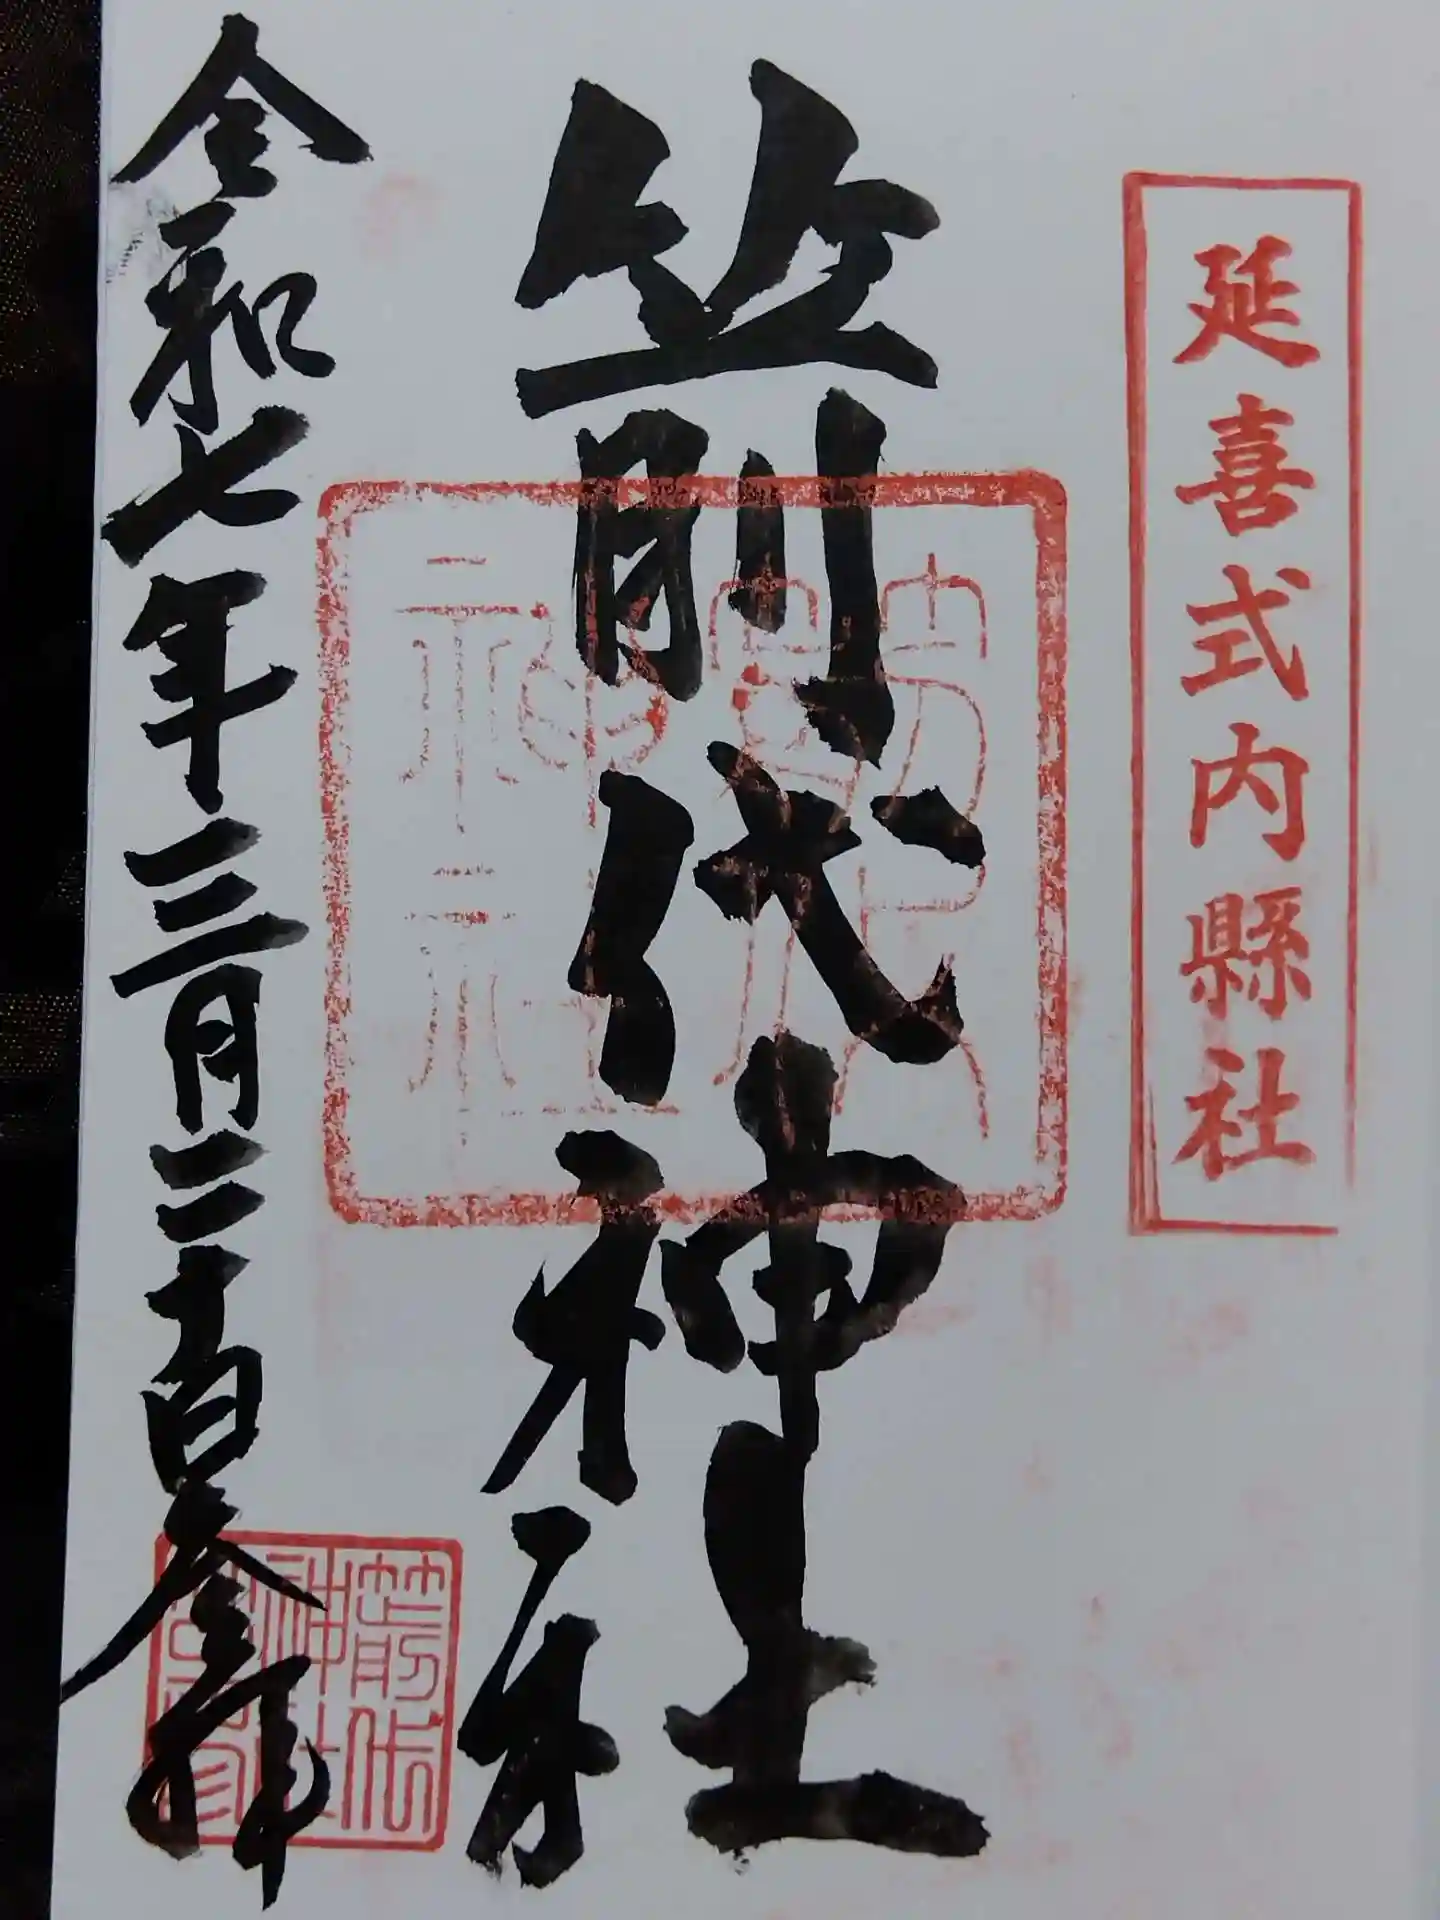 延喜式内縣社
箭代神社
令和七年三月二十日参拝
箭代
神社